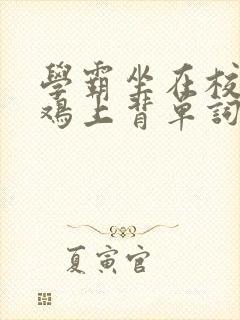 學霸坐在校
鴻上背單詞
夏寅官